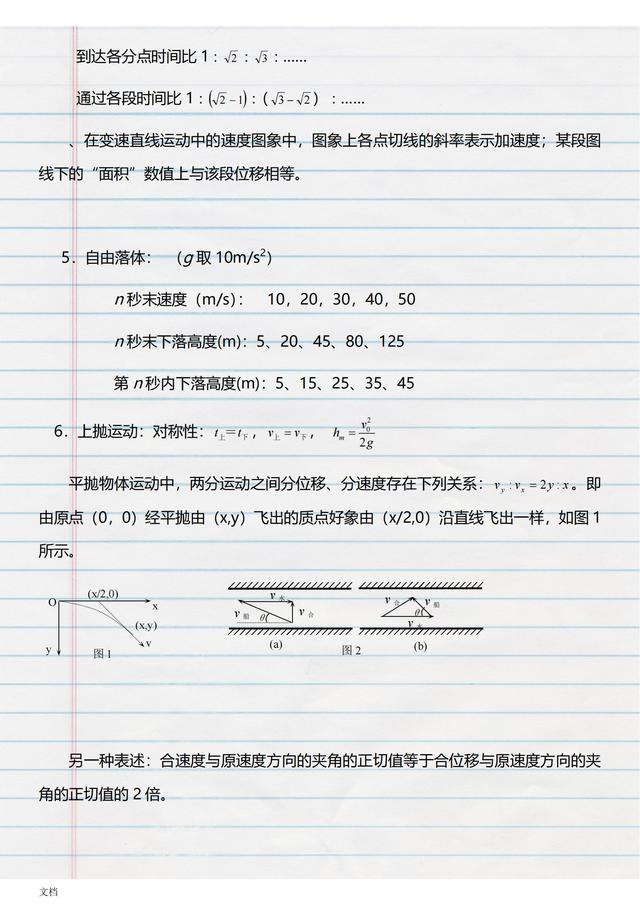 到达各分点时间比 1：√2 ：√3 ：……
通过各段时间比 1：(√2 −1)：(√3−√2 ) ：……
、在变速直线运动中的速度图象中，图象上各点切线的斜率表示加速度；某段图
线下的“面积”数值上与该段位移相等。
5．自由落体： （g 取 10m/s²）
n 秒末速度（m/s）： 10，20，30，40，50
n 秒末下落高度(m)：5、20、45、80、125
第 n 秒内下落高度(m)：5、15、25、35、45
6．上抛运动：对称性：t上＝t下，v上 = v下， hₘ = v₀²/2g
平抛物体运动中，两分运动之间分位移、分速度存在下列关系：v_y : v_x = 2y : x 。即
由原点（0，0）经平抛由（x,y）飞出的质点好象由（x/2,0）沿直线飞出一样，如图 1
所示。
O
(x/2,0)
x
(x,y)
y
v
图 1
v 水
v 船
θ
v 合
(a)
图 2
v 合
v 船
θ
v 水
(b)
另一种表述：合速度与原速度方向的夹角的正切值等于合位移与原速度方向的夹
角的正切值的 2 倍。
文档